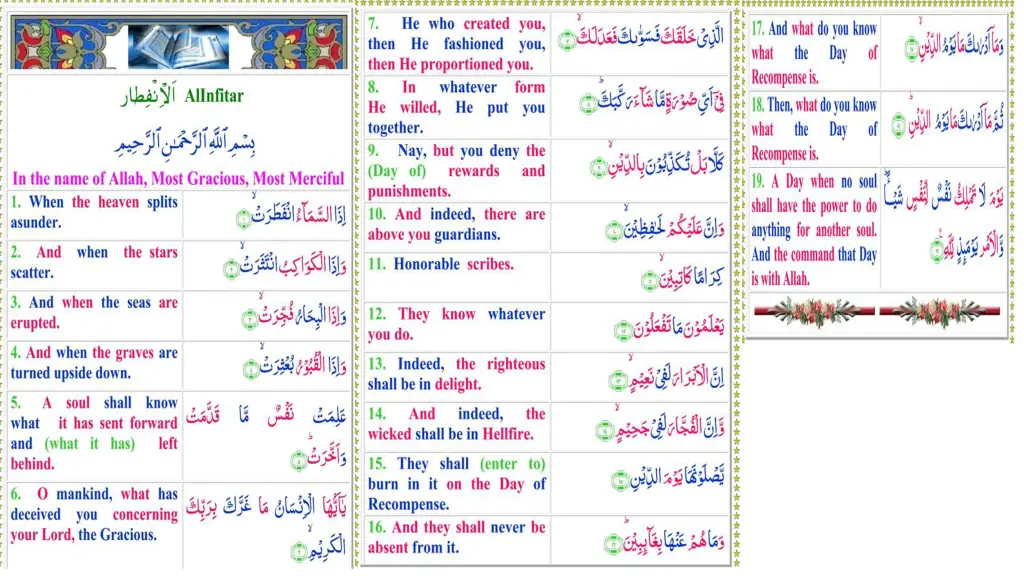 اَلْاِنْفِطار AlInfitar
بِسْمِ ٱللَّهِ ٱلرَّحْمَـٰنِ ٱلرَّحِيمِ
In the name of Allah, Most Gracious, Most Merciful
1. When the heaven splits
asunder.
اِذَا السَّمَآءُ انْفَطَرَتْۙ ۱
2. And when the stars
scatter.
وَاِذَا الْكَوَاكِبُ انْتَثَرَتْۙ ۲
3. And when the seas are
erupted.
وَاِذَا الْبِحَارُ فُجِّرَتْۙ ۳
4. And when the graves are
turned upside down.
وَاِذَا الْقُبُوْرُ بُعْثِرَتْۙ ۴
5. A soul shall know
what it has sent forward
and (what it has) left
behind.
عَلِمَتْ نَفْسٌ مَّا قَدَّمَتْ
وَاَخَّرَتْؕ ۵
6. O mankind, what has
deceived you concerning
your Lord, the Gracious.
يٰۤاَيُّهَا الْاِنْسَانُ مَا غَرَّكَ بِرَبِّكَ
الْكَرِيْمِۙ ۶
7. He who created you,
then He fashioned you,
then He proportioned you.
الَّذِىْ خَلَقَكَ فَسَوّٰٮكَ فَعَدَلَـكَۙ ۷
8. In whatever form
He willed, He put you
together.
فِىْۤ اَىِّ صُوْرَةٍ مَّا شَآءَ رَكَّبَكَؕ ۸
9. Nay, but you deny the
(Day of) rewards and
punishments.
كَلَّا بَلْ تُكَذِّبُوْنَ بِالدِّيْنِۙ ۹
10. And indeed, there are
above you guardians.
وَاِنَّ عَلَيْكُمْ لَحٰفِظِيْنَۙ ۱۰
11. Honorable scribes.
كِرَامًا كَاتِبِيْنَۙ ۱۱
12. They know whatever
you do.
يَعْلَمُوْنَ مَا تَفْعَلُوْنَ ۱۲
13. Indeed, the righteous
shall be in delight.
اِنَّ الْاَبْرَارَ لَفِىْ نَعِيْمٍۙ ۱۳
14. And indeed, the
wicked shall be in Hellfire.
وَّاِنَّ الْفُجَّارَ لَفِىْ جَحِيْمٍۙ ۱۴
15. They shall (enter to)
burn in it on the Day of
Recompense.
يَّصْلَوْنَهَا يَوْمَ الدِّيْنِ ۱۵
16. And they shall never be
absent from it.
وَمَا هُمْ عَنْهَا بِغَآٮِٕبِيْنَؕ ۱۶
17. And what do you know
what the Day of
Recompense is.
وَمَاۤ اَدْرٰٮكَ مَا يَوْمُ الدِّيْنِۙ ۱۷
18. Then, what do you know
what the Day of
Recompense is.
ثُمَّ مَاۤ اَدْرٰٮكَ مَا يَوْمُ الدِّيْنِؕ ۱۸
19. A Day when no soul
shall have the power to do
anything for another soul.
And the command that Day
is with Allah.
يَوْمَ لَا تَمْلِكُ نَفْسٌ لِّنَفْسٍ شَيْـًٔـاؕ
وَالْاَمْرُ يَوْمَٮِٕذٍ لِّلّٰهِ ۱۹